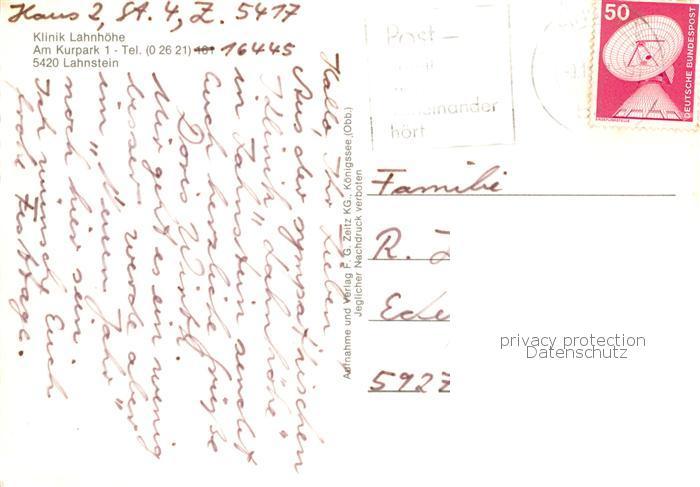 Haus 2, St. 4, Z. 5417
Klinik Lahnhöhe
Am Kurpark 1 - Tel. (0 26 21) 101 16445
5420 Lahnstein
Hallo, Ihr Lieben
Aus der sympathischen
Klinik "Lahnhöhe"
in Lahnstein sendet
Euch herzliche Grüße
Doris
Mir geht es ein wenig
besser, werde aber
im "Neuen Jahr"
noch hier sein
Ich wünsche Euch
frohe Festtage.
Aufnahme und Verlag F. G. Zeitz KG., Königssee (Obb.)
Jeglicher Nachdruck verboten
Post-
einander
hört
50
DEUTSCHE BUNDESPOST
Familie
R.
5927
privacy protection
Datenschutz